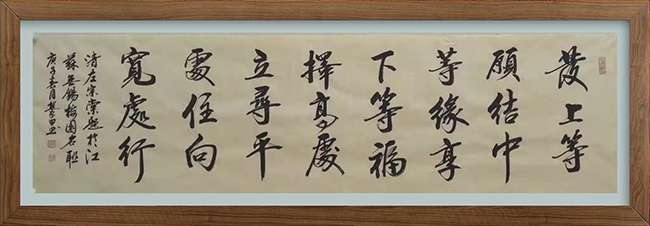 發上等
願結中
等緣享
下等福
擇高處
立尋平
處住向
寬處行
清左宗棠題於江
蘇無錫梅園名聯
庚子春月